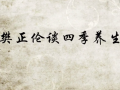 樊正伦谈四季养生